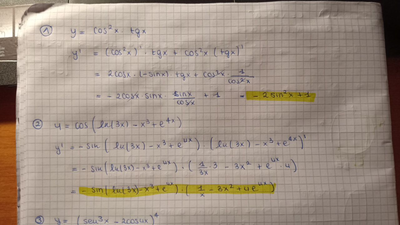 ① y = cos²x · tgx
y' = (cos²x)' · tgx + cos²x (tgx)'
= 2cosx · (-sinx) tgx + cos²x 1/cos²x
= -2cosx · sinx sinx/cosx + 1 = -2sin²x + 1
② y = cos(ln(3x) - x³ + e^(4x))
y' = -sin(ln(3x) - x³ + e^(4x)) · (ln(3x) - x³ + e^(4x))'
= -sin(ln(3x) - x³ + e^(4x)) · (1/3x · 3 - 3x² + e^(4x) · 4)
= -sin(ln(3x) - x³ + e^(4x)) · (1/x - 3x² + 4e^(4x))
③ y = (sen³x - 2cos4x)⁴